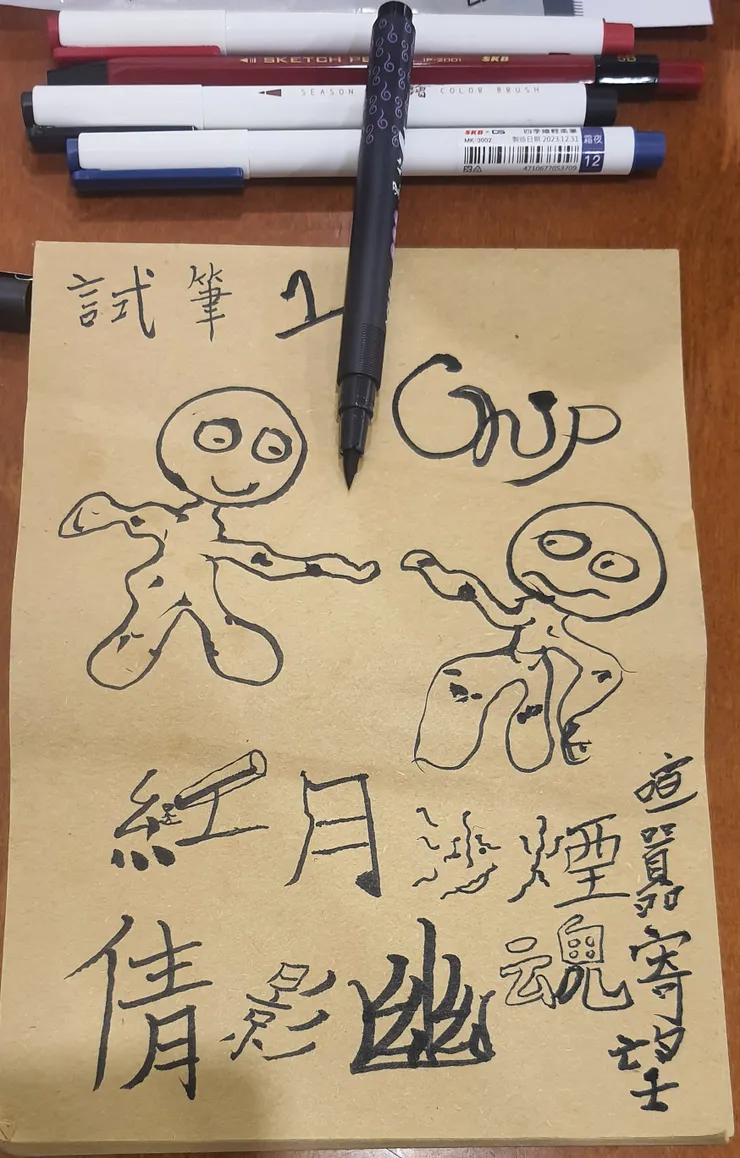 SKETCH PEN IP-2001 SKB
SEASON COLOR BRUSH
SKB
MK-3002 製造日期 2023.12.31
霜夜
12
4710677053709
試筆 1
Chip
紅月沙煙
倩影幽魂
喧囂寄望